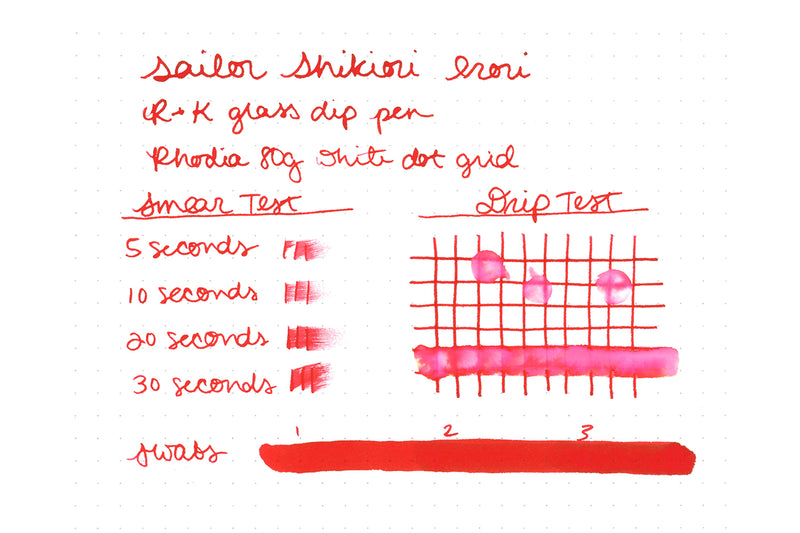 Sailor Shikiori Irori
R+K glass dip pen
Rhodia 80g white dot grid
Smear Test
5 seconds
10 seconds
20 seconds
30 seconds
Drip Test
1 2 3
swabs